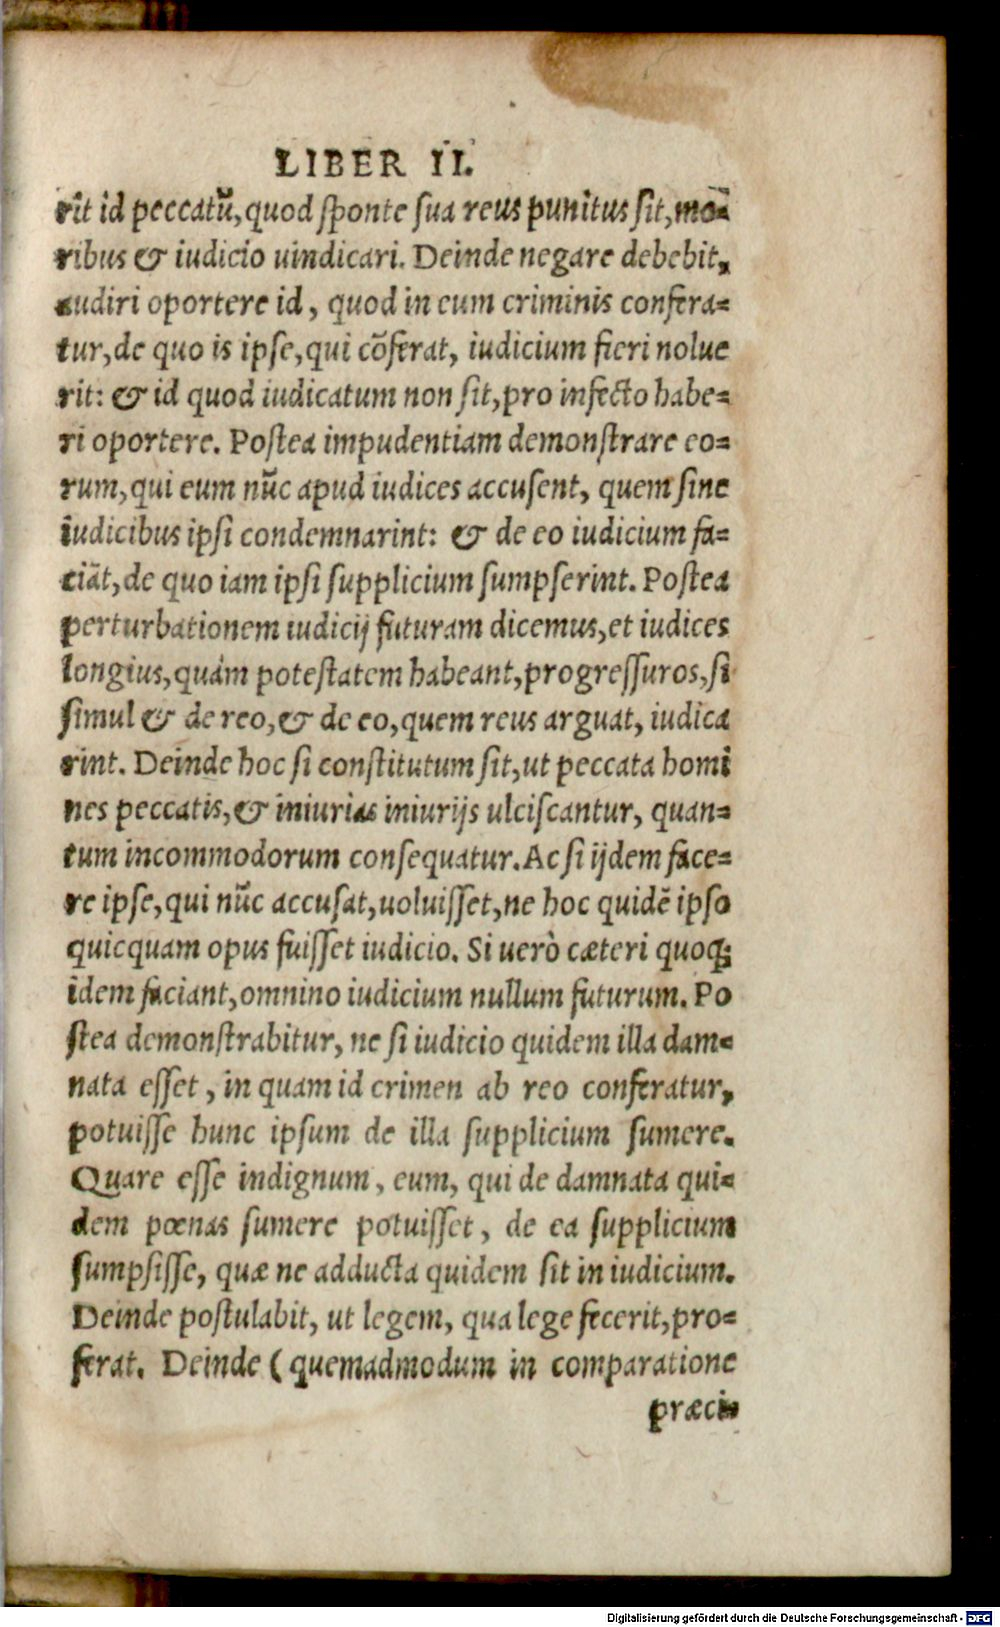 LIBER II.
rit id peccatũ, quod sponte sua reus punitus sit, mo-
ribus & iudicio uindicari. Deinde negare debebit,
audiri oportere id, quod in eum criminis confera-
tur, de quo is ipse, qui cõferat, iudicium fieri nolue
rit: & id quod iudicatum non sit, pro infecto habe-
ri oportere. Postea impudentiam demonstrare eo-
rum, qui eum nũc apud iudices accusent, quem sine
iudicibus ipsi condemnarint: & de eo iudicium fa-
ciãt, de quo iam ipsi supplicium sumpserint. Postea
perturbationem iudicij futuram dicemus, et iudices
longius, quàm potestatem habeant, progressuros, si
simul & de reo, & de eo, quem reus arguat, iudica
rint. Deinde hoc si constitutum sit, ut peccata homi
nes peccatis, & iniurias iniurijs ulciscantur, quan-
tum incommodorum consequatur. Ac si ijdem face-
re ipse, qui nũc accusat, uoluisset, ne hoc quidẽ ipso
quicquam opus fuisset iudicio. Si uerò cæteri quoq;
idem faciant, omnino iudicium nullum futurum. Po
stea demonstrabitur, ne si iudicio quidem illa dam-
nata esset, in quam id crimen ab reo conferatur,
potuisse hunc ipsum de illa supplicium sumere.
Quare esse indignum, eum, qui de damnata qui-
dem pœnas sumere potuisset, de ea supplicium
sumpsisse, quæ ne adducta quidem sit in iudicium.
Deinde postulabit, ut legem, qua lege fecerit, pro-
ferat. Deinde (quemadmodum in comparatione
præci-
Digitalisierung gefördert durch die Deutsche Forschungsgemeinschaft - DFG